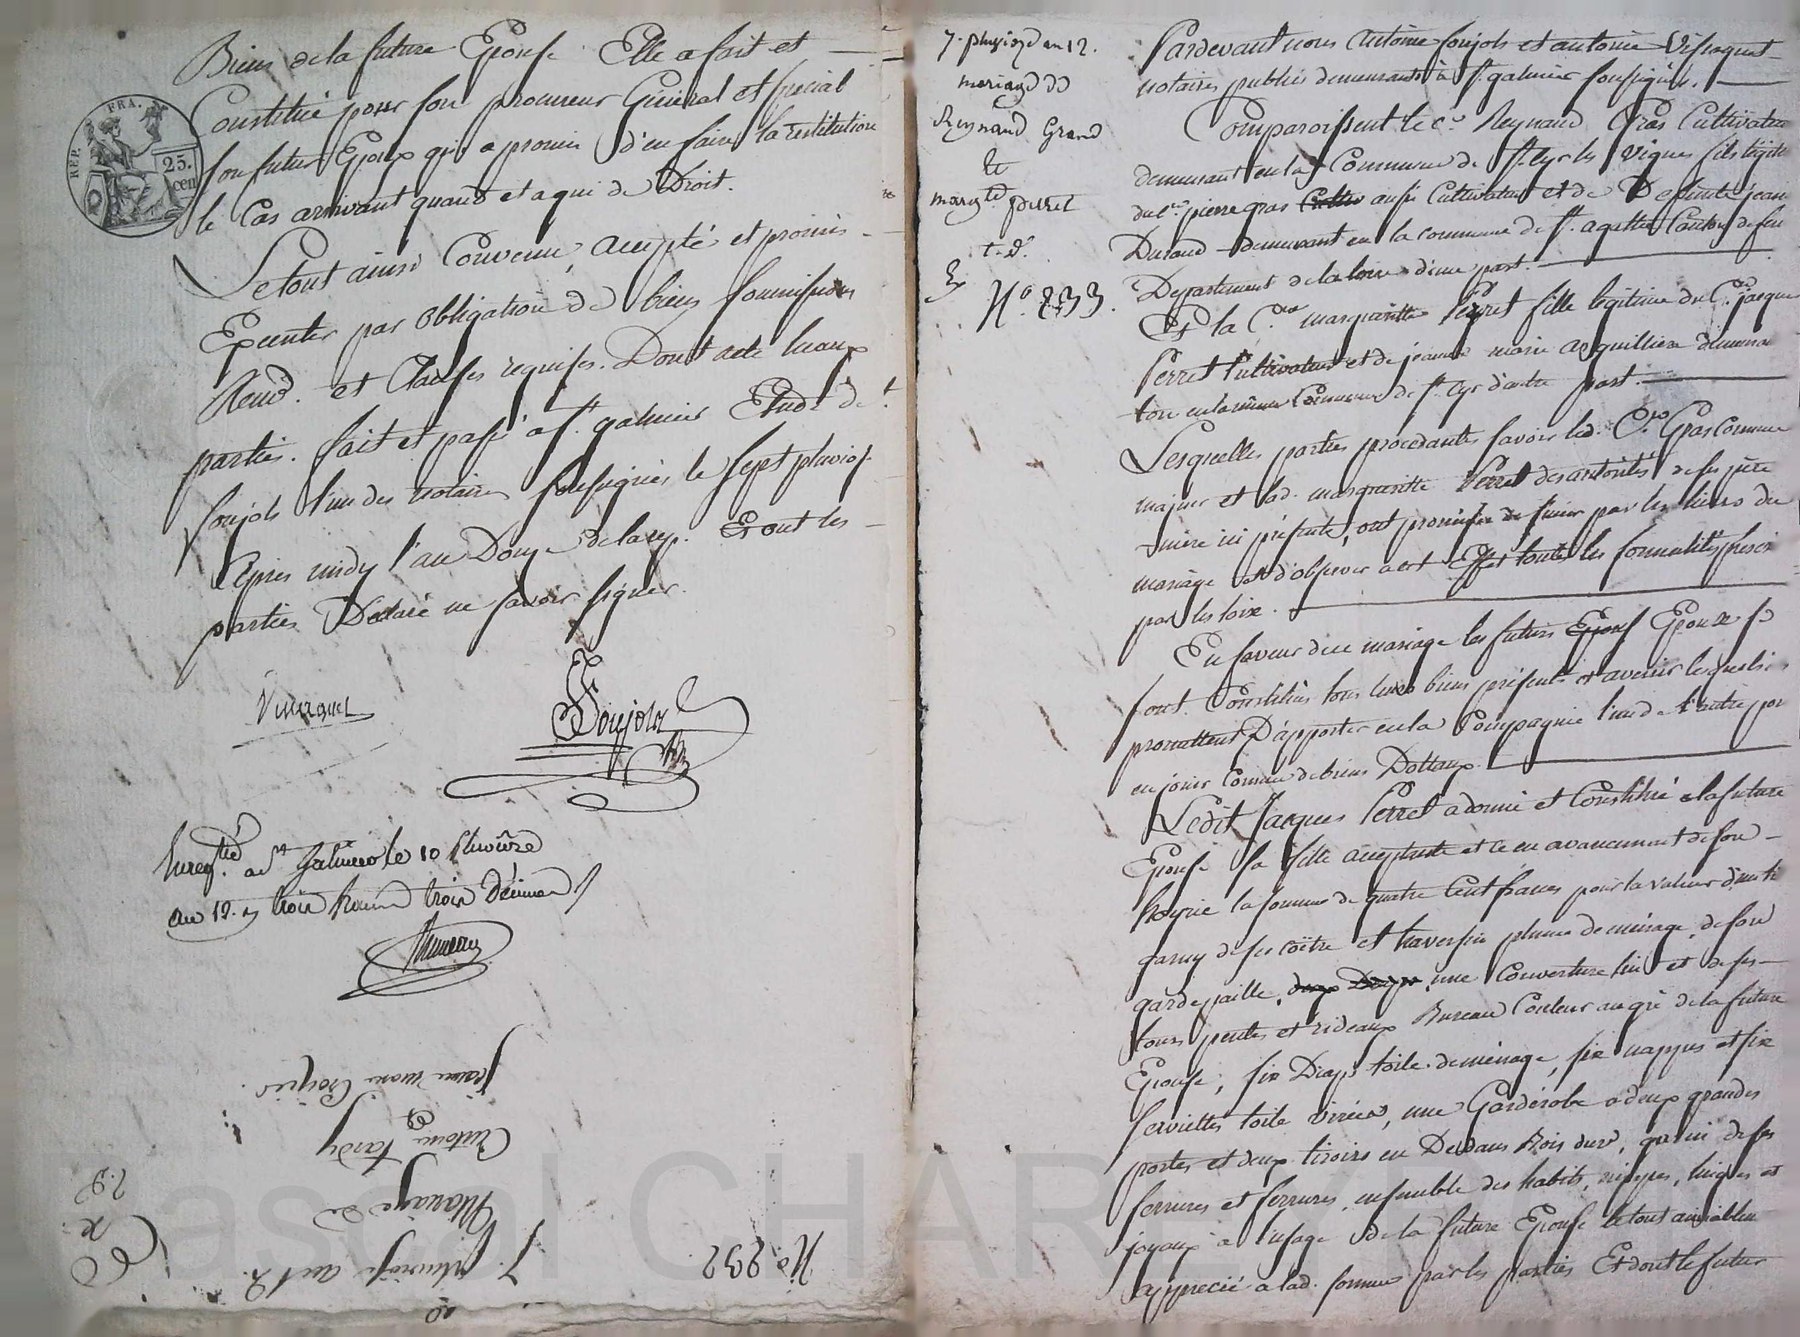 Biens de la future Epouse. Elle a fait et
Constitué pour son procureur Général et spécial
son futur Epoux qui a promis d'en faire la restitution
le Cas arrivant quand et a qui de Droit.
Le tout ainsi Convenu, accepté et promis
Executer par obligation de biens soumissions
Renon. et Clauses requises. Dont acte lu aux
parties. fait et passé a St. galmier Etude de
soujols l'un des notaires soussignés le sept pluviose
après midy l'an Douze de la rep. Et ont les
parties Declaré ne savoir signer.
REP. FRA.
25.
cen
Soujols
Enregtré. a St Galmier le 10 Pluviôse
an 12. trois francs trois Décimes
Jeanne marie
&
Antoine tardy
Mariage de
7. pluviose an 12.
No. 232
7. pluviose an 12.
mariage de
Reynaud Gras
&
margte perret
No. 233.
Pardevant nous Antoine soujols et antoine
notaires publics demeurants à St. galmier soussignés.
Comparoissent le Cn. Reynaud Gras Cultivateur
demeurant en la Commune de St. Cyr les Vignes fils légite
du Cn. pierre gras aussi Cultivateur et de Deffunte jeanne
Durand demeurant en la commune de St. agathe Canton de feu
Departement de la loire d'une part.
Et la Cne. marguerite Perret fille legitime du Cn. Jacques
Perret Cultivateur et de jeanne marie demeurant
en la même Commune de St. Cyr d'autre part.
Lesquelles parties procedantes savoir led. Cn. Gras Comme
majeur et lad. marguerite Perret des autorités de ses père
mère ici présents, ont promis se par les liens du
mariage et d'observer a cet Effet toutes les formalités prescri
par les loix.
En faveur de ce mariage les futurs Epoux se
sont Constitués tous leurs biens présents et avenir lesquels
promettent D'apporter en la Compagnie l'un de l'autre pour
en jouir Comme de biens Dottaux.
Ledit Jacques Perret a donné et Constitué a la future
Epouse sa fille acceptante et ce en avancement de son
hoyrie la somme de quatre Cent francs pour la valeur d'un lit
garny de ses coitre et traversin plume de ménage, de son
gardepaille, une Couverture et de ses
tours pentes et rideaux Bureau Couleur au gré de la future
Epouse, six Draps toile de ménage, six nappes et six
serviettes toile, une Garderobe a deux grandes
portes et deux tiroirs en Dedans Bois dur, garni de ses
ferrures et serrures, ensemble des habits, nippes, linges et
joyaux a l'usage de la future Epouse le tout amiablem
apprécié a lad. somme par les parties Et dont le futur